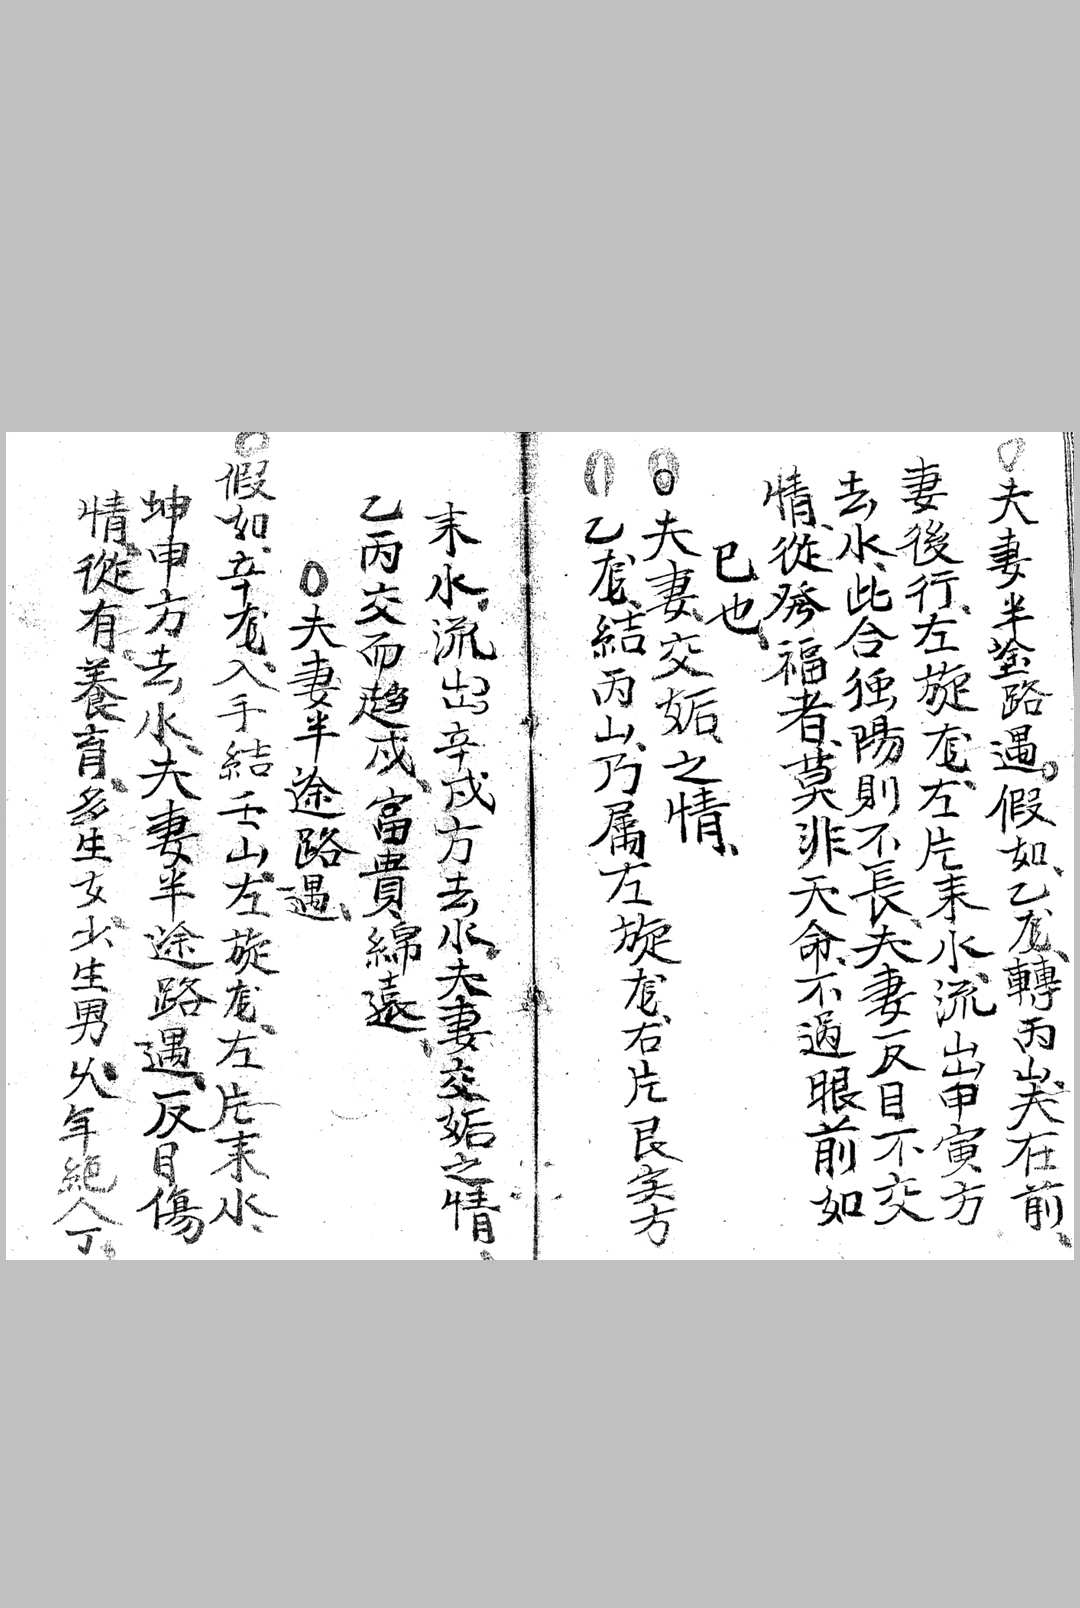 夫妻半塗路遇。假如、乙尨、轉丙山、夫在前、
妻後行、左旋尨、左片来水、流出申寅方
去水、此合独陽則不長、夫妻反目不交
情、從發福者、莫非天命、不過眼前如
已也、
○夫妻交姤之情、
乙尨、結丙山、乃属左旋尨、右片艮亥方
来水、流出辛戌方去水、夫妻交姤之情、
乙丙交而趋戍、富貴綿遠、
○夫妻半途路遇、
假如、辛尨、入手結壬山、左旋尨、左片来水、
坤申方去水、夫妻半途路遇、反目傷
情、從有養育、多生女、少生男、少年絕人丁、